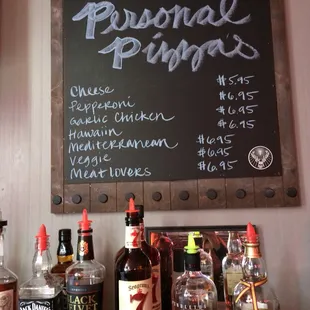 Personal
Pizza's
Cheese $5.95
Pepperoni $6.95
Garlic Chicken $6.95
Hawaiin $6.95
Mediterranean $6.95
Veggie $6.95
Meat lovers $6.95
JACK DANIEL'S
BLACK
VELVET
Seagram's
7